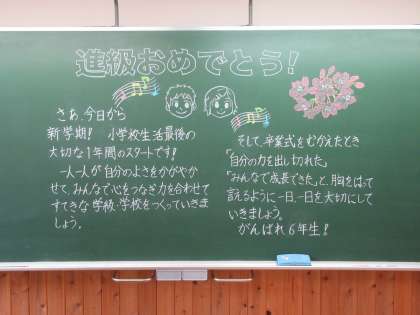 進級おめでとう!
さあ、今日から
新学期! 小学校生活最後の
大切な1年間のスタートです!
一人一人が自分のよさをかがやか
せて、みんなで心をつなぎ力を合わせて
すてきな学級、学校をつくっていきま
しょう。
そして、卒業式をむかえたとき
「自分の力を出し切れた。」
「みんなで成長できた。」と、胸をはって
言えるように一日、一日を大切にして
いきましょう。
がんばれ6年生!